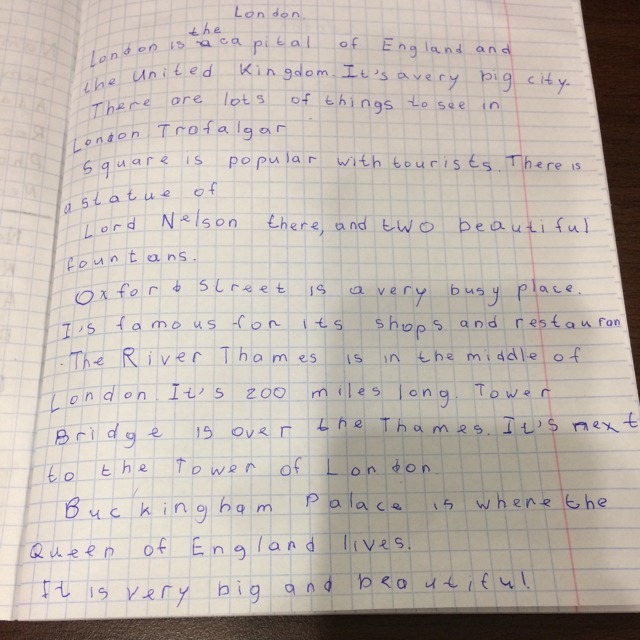 London.
London is the capital of England and
the United Kingdom. It's a very big city.
There are lots of things to see in
London Trafalgar
Square is popular with tourists. There is
a statue of
Lord Nelson there, and two beautiful
fountans.
Oxford Street is a very busy place.
I's famous for its shops and restauran
The River Thames is in the middle of
London. It's 200 miles long. Tower
Bridge is over the Thames. It's next
to the Tower of London.
Buckingham Palace is where the
Queen of England lives.
It is very big and beautiful.